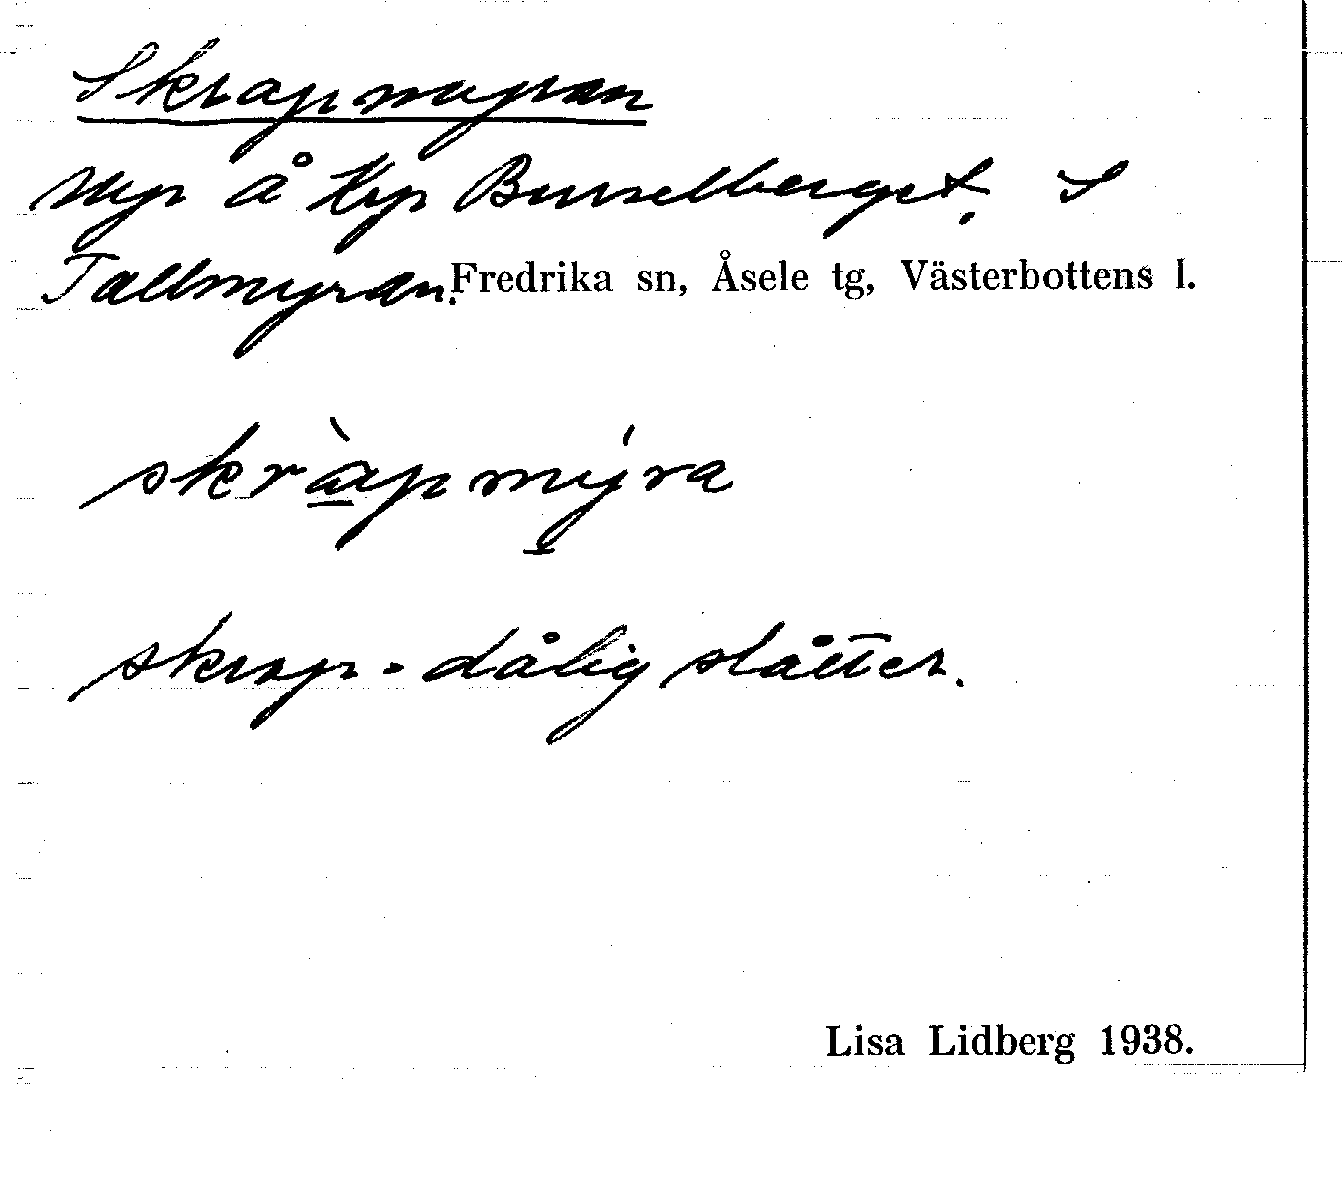 Skrapmyran
Myr å krp Bursselberget. S
Tallmyran. Fredrika sn, Åsele tg, Västerbottens l.
skràpmýra
skrap = dålig slåtter.
Lisa Lidberg 1938.